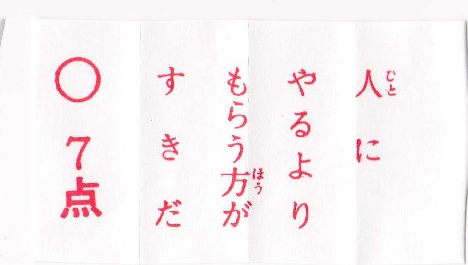 人に
やるより
もらう方が
すきだ
○ 7点